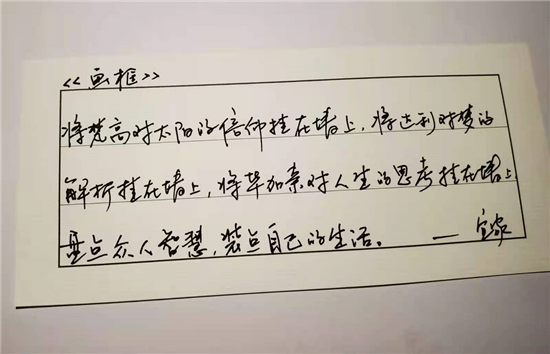 《画框》
将梵高对太阳的信仰挂在墙上,将达利对梦的
解析挂在墙上,将毕加索对人生的思考挂在墙上
盘点众人智慧,装点自己的生活。 —